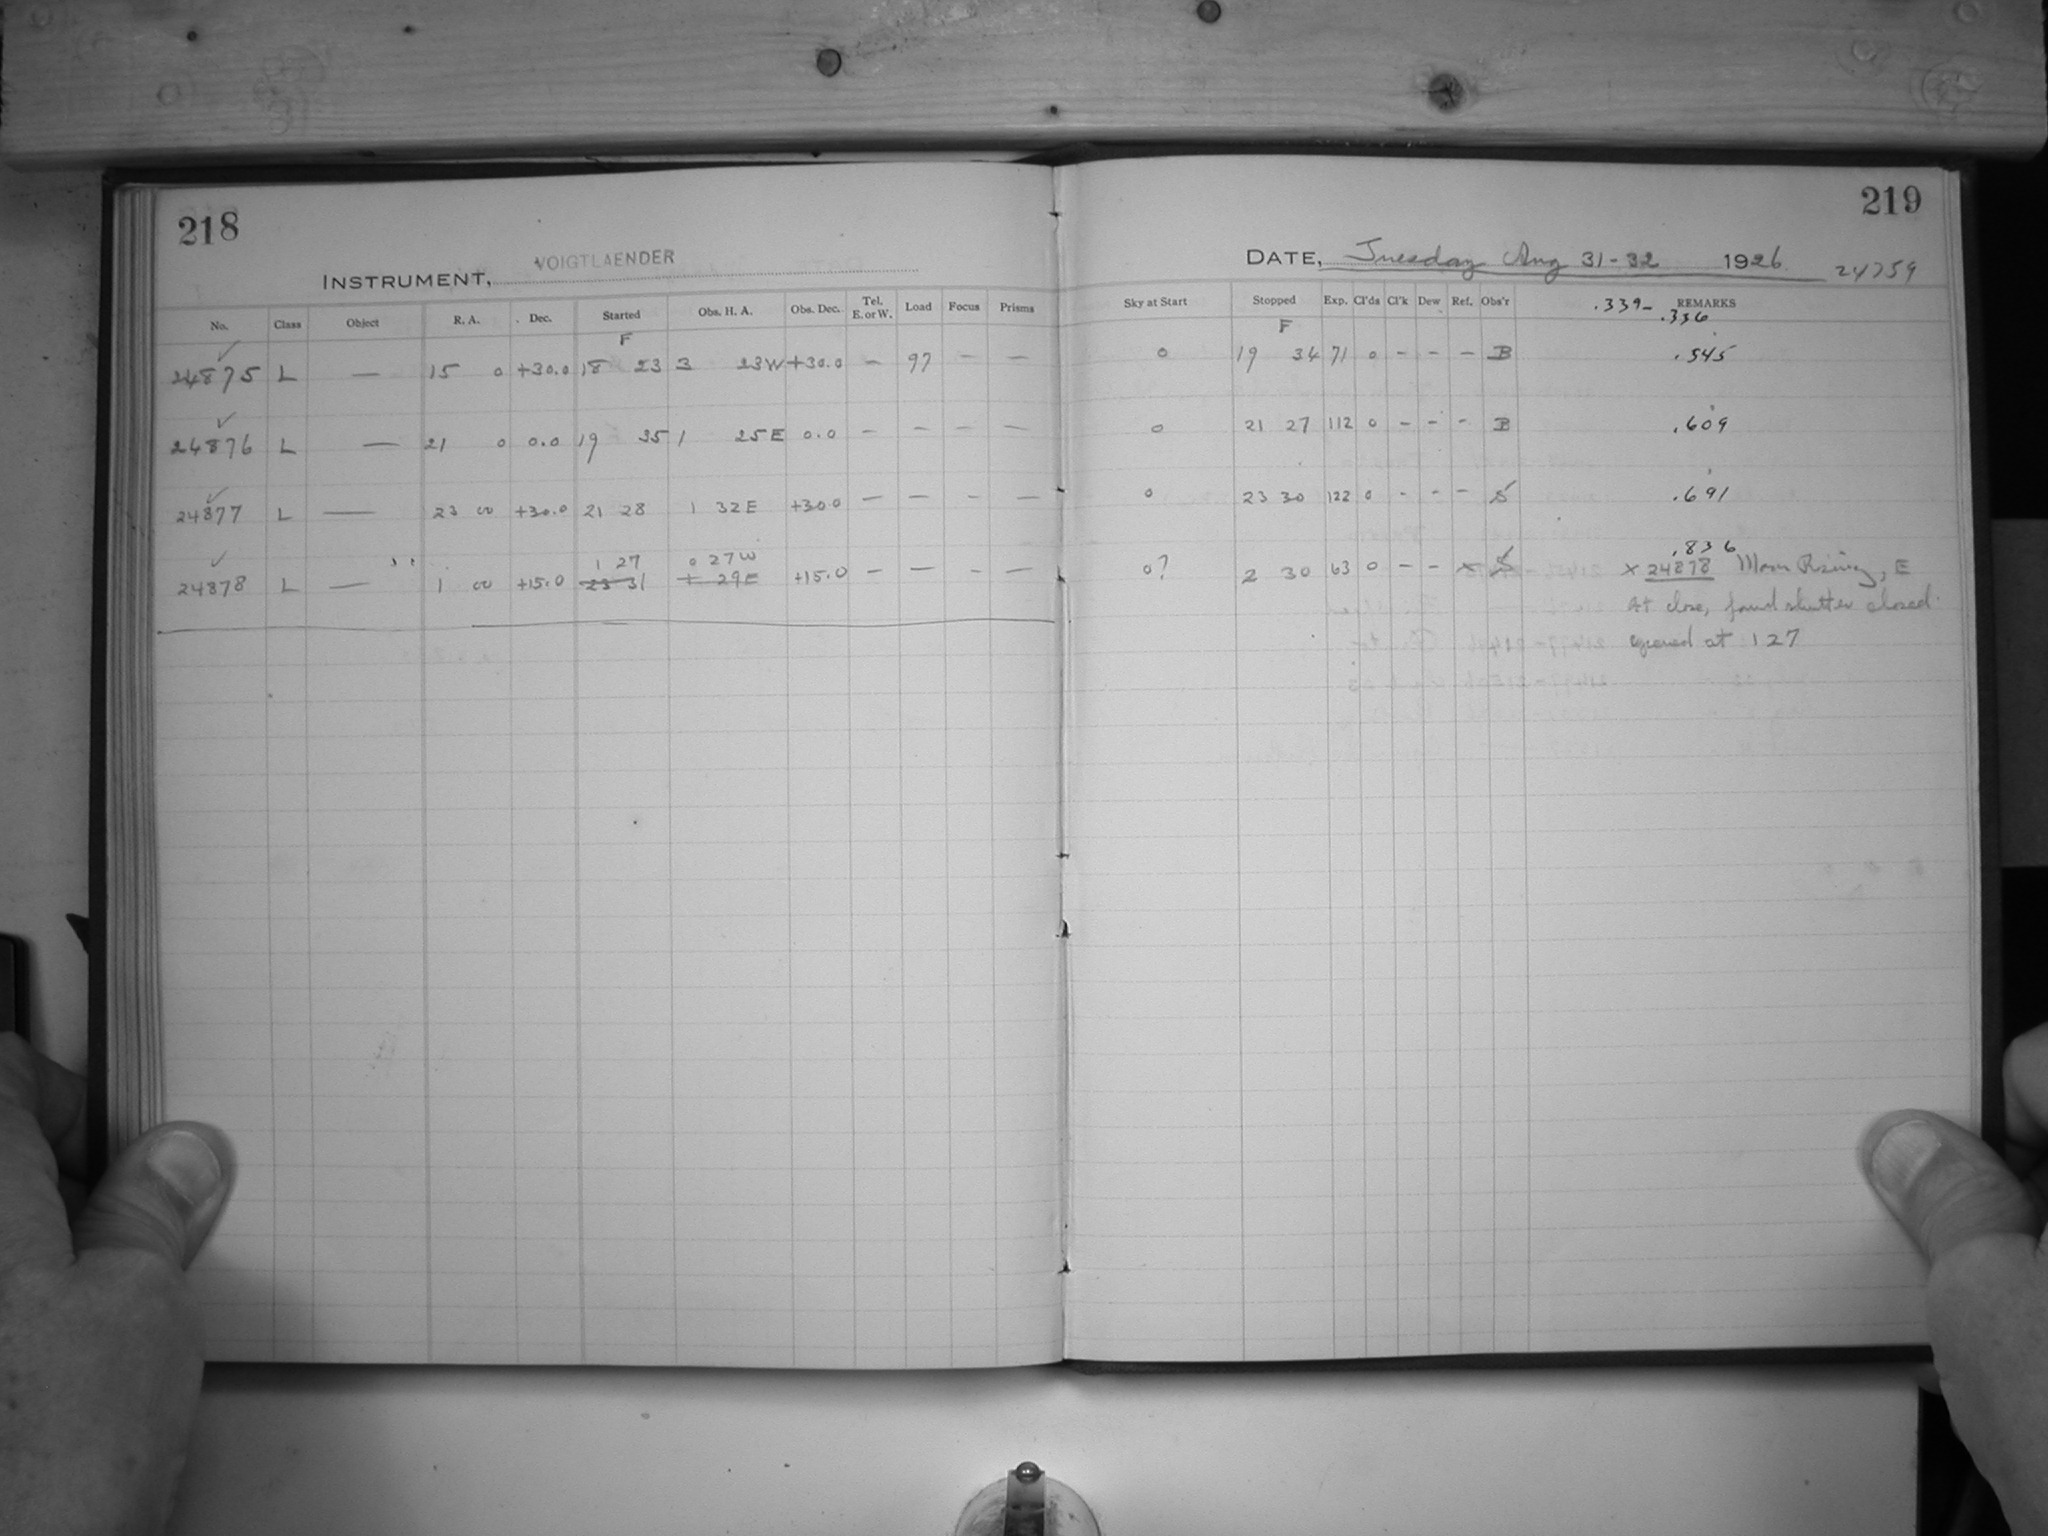 218
INSTRUMENT, VOIGTLAENDER
No. Class Object R. A. Dec. Started Obs. H. A. Obs. Dec. Tel. E. or W. Load Focus Prisms
F
24875 L — 15 0 +30.0 18 23 3 23W +30.0 — 97 — —
24876 L — 21 0 0.0 19 35 1 25 E 0.0 — — — —
24877 L — 23 00 +30.0 21 28 1 32E +30.0 — — - —
1 27 0 27W
24878 L — 1 00 +15.0 23 31 1 29E +15.0 — — - —
219
DATE, Tuesday Aug 31-32 1926 24759
Sky at Start Stopped Exp. Cl'ds Cl'k Dew Ref. Obs'r .339- REMARKS
.336
F
0 19 34 71 0 - - - B .545
0 21 27 112 0 - - - B .609
0 23 30 122 0 - - - S .691
.836
0? 2 30 63 0 - - x S x 24878 Moon Rising, E
At close, found shutter closed.
opened at 1 27